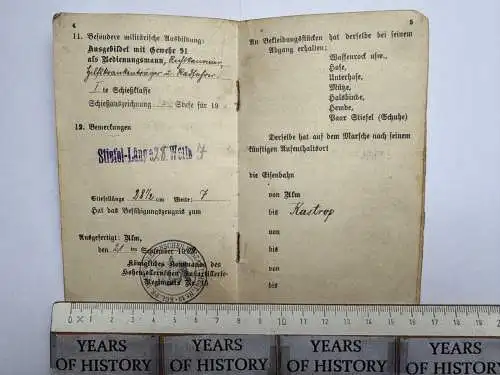 4
11. Besondere militärische Ausbildung:
Ausgebildet mit Gewehr 91
als Bedienungsmann,
Hilfskrankenträger u. Radfahrer
I te Schießklasse
Schießauszeichnung Stufe für 19
12. Bemerkungen
Stiefel-Länge 28 Weite 7
Stiefellänge 28½ cm Weite: 7
Hat das Befähigungszeugnis zum
Ausgefertigt: Ulm,
den 21 im September 19
Königliches Kommando des
Hohenzollernschen Fußartillerie-
Regiments Nr. 13
5
An Bekleidungsstücken hat derselbe bei seinem
Abgang erhalten:
Waffenrock usw.,
Hose,
Unterhose,
Mütze,
Halsbinde,
Hemde,
Paar Stiefel (Schuhe)
Derselbe hat auf dem Marsche nach seinem
künftigen Aufenthaltsort
die Eisenbahn
von Ulm
bis Kastrop
von
bis
von
bis
0 1 2 3 4 5 6 7 8 9 10 11 12 13 14 15 16 17 18 19
YEARS OF HISTORY
YEARS OF HISTORY
YEARS OF HISTORY
YEARS OF HISTORY